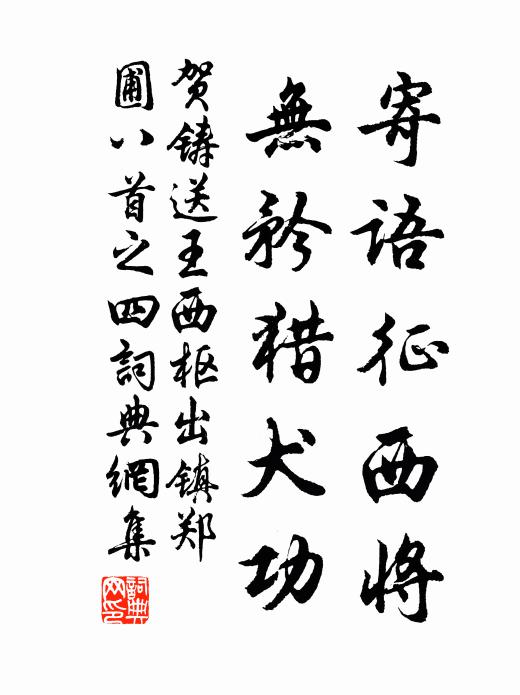 寄語征西將
無矜猎犬功
贺鑄送王西枢出镇郑
圃八首之四詞典網集
詞典网印